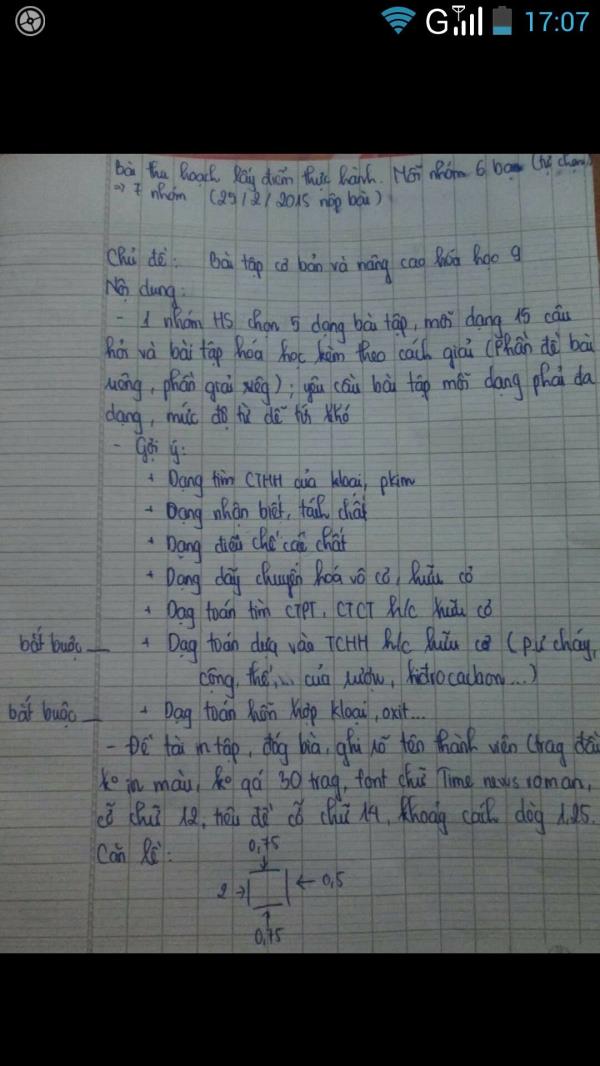 G 17:07
Bài thu hoạch lấy điểm thực hành. Mỗi nhóm 6 bạn (tự chọn)
=> 7 nhóm (25/2/2015 nộp bài)
Chủ đề: Bài tập cơ bản và nâng cao hóa học 9
Nội dung:
- 1 nhóm HS chọn 5 dạng bài tập, mỗi dạng 15 câu
hỏi và bài tập hóa học kèm theo cách giải (Phần đề bài
riêng, phần giải riêng); yêu cầu bài tập mỗi dạng phải đa
dạng, mức độ từ dễ tới khó
- Gợi ý:
+ Dạng tìm CTHH của kloại, pkim
+ Dạng nhận biết, tách chất
+ Dạng điều chế các chất
+ Dạng dãy chuyển hoá vô cơ, hữu cơ
+ Dạg toán tìm CTPT, CTCT h/c hữu cơ
bắt buộc — + Dạg toán dựa vào TCHH h/c hữu cơ (pư cháy,
cộng, thế,... của rượu, hiđrocacbon...)
bắt buộc — + Dạg toán hỗn hợp kloại, oxit...
- Đề tài in tập, đóg bìa, ghi rõ tên thành viên (trag đầu
ko in màu, ko qá 30 trag, font chữ Time news roman,
cỡ chữ 12, tiêu đề cỡ chữ 14, khoảg cách dòg 1,25.
Căn lề:
0,75
2 → ← 0,5
0,75